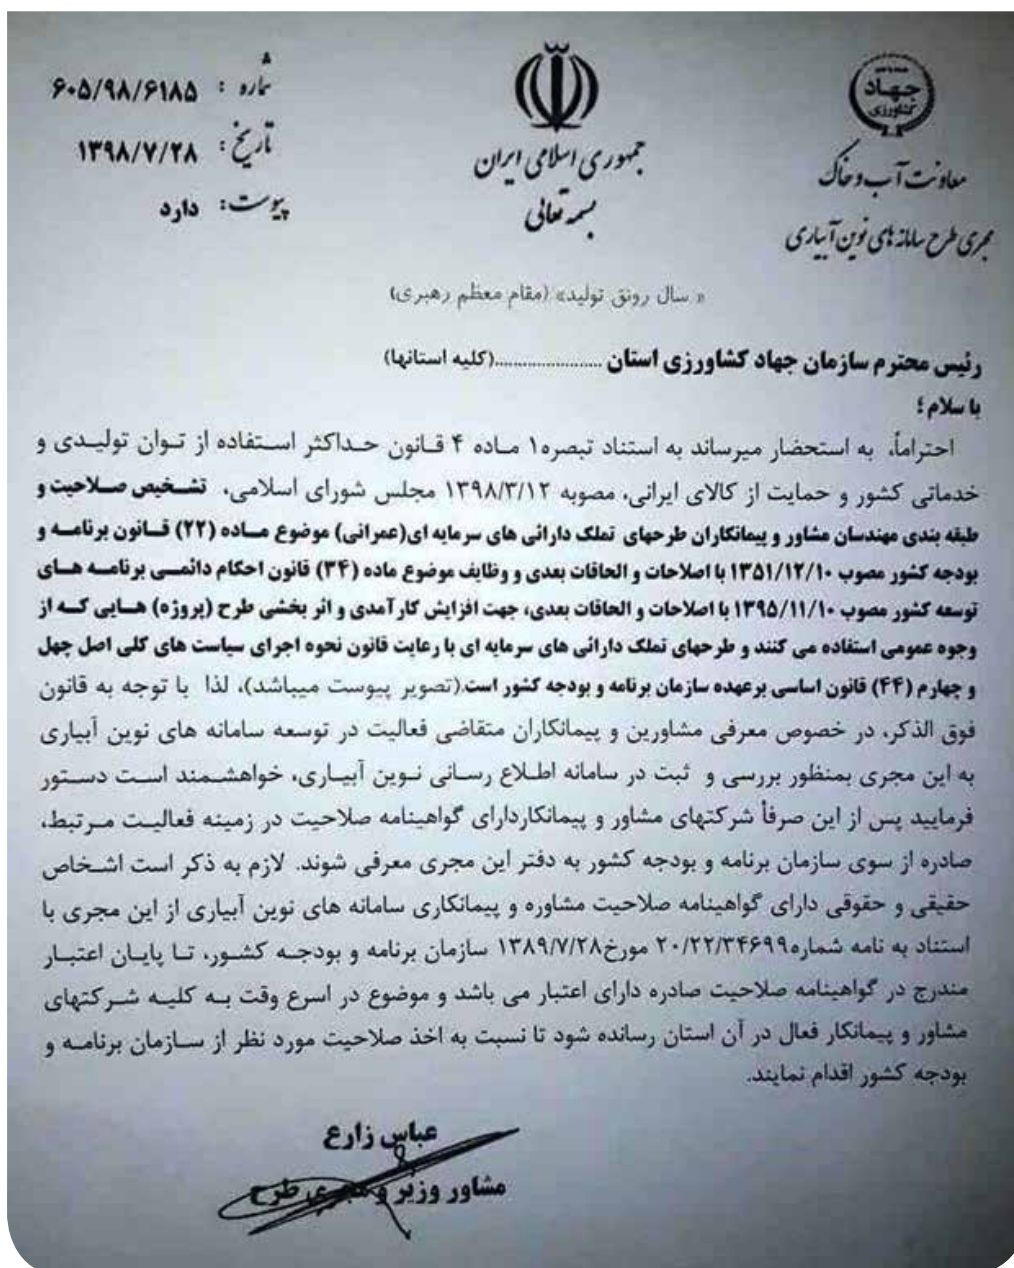 جهاد
کشاورزی
معاونت آب و خاک
مجری طرح سامانه های نوین آبیاری
جمهوری اسلامی ایران
بسمه تعالی
شماره : ۶۰۵/۹۸/۶۱۸۵
تاریخ : ۱۳۹۸/۷/۲۸
پیوست : دارد
« سال رونق تولید» (مقام معظم رهبری)
رئیس محترم سازمان جهاد کشاورزی استان ......................(کلیه استانها)
با سلام ؛
احتراماً، به استحضار میرساند به استناد تبصره۱ ماده ۴ قانون حداکثر استفاده از توان تولیدی و
خدماتی کشور و حمایت از کالای ایرانی، مصوبه ۱۳۹۸/۳/۱۲ مجلس شورای اسلامی، تشخیص صلاحیت و
طبقه بندی مهندسان مشاور و پیمانکاران طرحهای تملک دارائی های سرمایه ای(عمرانی) موضوع ماده (۲۲) قانون برنامه و
بودجه کشور مصوب ۱۳۵۱/۱۲/۱۰ با اصلاحات و الحاقات بعدی و وظایف موضوع ماده (۳۴) قانون احکام دائمی برنامه های
توسعه کشور مصوب ۱۳۹۵/۱۱/۱۰ با اصلاحات و الحاقات بعدی، جهت افزایش کارآمدی و اثر بخشی طرح (پروژه) هایی که از
وجوه عمومی استفاده می کنند و طرحهای تملک دارائی های سرمایه ای با رعایت قانون نحوه اجرای سیاست های کلی اصل چهل
و چهارم (۴۴) قانون اساسی برعهده سازمان برنامه و بودجه کشور است.(تصویر پیوست میباشد)، لذا با توجه به قانون
فوق الذکر، در خصوص معرفی مشاورین و پیمانکاران متقاضی فعالیت در توسعه سامانه های نوین آبیاری
به این مجری بمنظور بررسی و ثبت در سامانه اطلاع رسانی نوین آبیاری، خواهشمند است دستور
فرمایید پس از این صرفأ شرکتهای مشاور و پیمانکاردارای گواهینامه صلاحیت در زمینه فعالیت مرتبط،
صادره از سوی سازمان برنامه و بودجه کشور به دفتر این مجری معرفی شوند. لازم به ذکر است اشخاص
حقیقی و حقوقی دارای گواهینامه صلاحیت مشاوره و پیمانکاری سامانه های نوین آبیاری از این مجری با
استناد به نامه شماره۲۰/۲۲/۳۴۶۹۹ مورخ۱۳۸۹/۷/۲۸ سازمان برنامه و بودجه کشور، تا پایان اعتبار
مندرج در گواهینامه صلاحیت صادره دارای اعتبار می باشد و موضوع در اسرع وقت به کلیه شرکتهای
مشاور و پیمانکار فعال در آن استان رسانده شود تا نسبت به اخذ صلاحیت مورد نظر از سازمان برنامه و
بودجه کشور اقدام نمایند.
عباس زارع
مشاور وزیر و مجری طرح